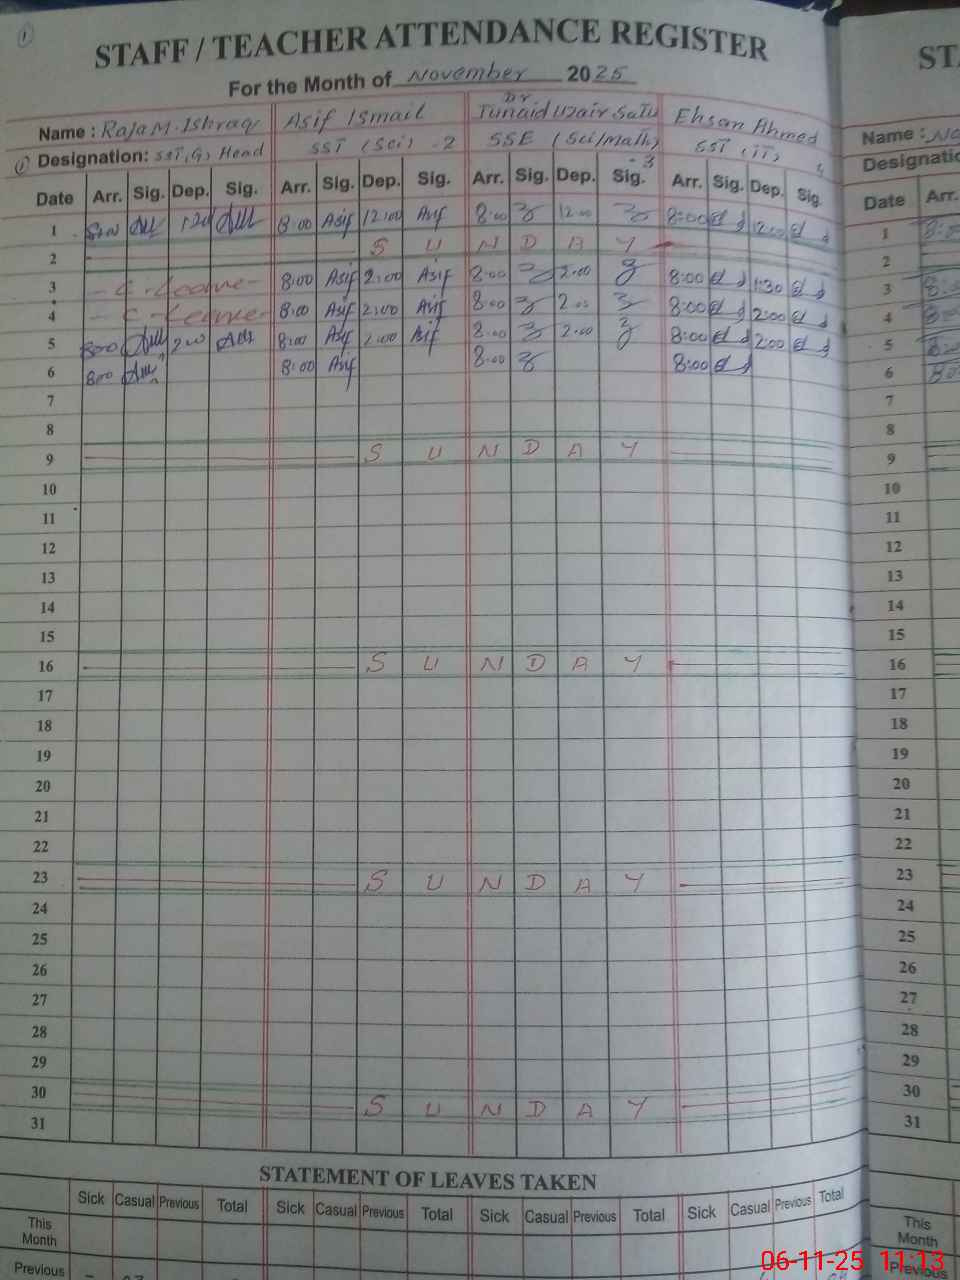 1
STAFF / TEACHER ATTENDANCE REGISTER
For the Month of November 2025
Name : Raja M. Ishraq Asif Ismail Dr Junaid Uzair Satti Ehsan Ahmed
① Designation: SST(G) Head SST (Sci) - 2 SSE (Sci/Math) - 3 SST (IT)
Date Arr. Sig. Dep. Sig. Arr. Sig. Dep. Sig. Arr. Sig. Dep. Sig. Arr. Sig. Dep. Sig.
1 8:00 8:00 Asif 12:00 Asif 8:00 12:00 8:00 12:00
2 S U N D A Y
3 - C. Leave - 8:00 Asif 2:00 Asif 8:00 2:00 8:00 1:30
4 - C. Leave - 8:00 Asif 2:00 Asif 8:00 2:00 8:00 2:00
5 800 200 8:00 Asif 2:00 Asif 8:00 2:00 8:00 2:00
6 800 8:00 Asif 8:00 8:00
7
8
9 S U N D A Y
10
11
12
13
14
15
16 S U N D A Y
17
18
19
20
21
22
23 S U N D A Y
24
25
26
27
28
29
30 S U N D A Y
31
STATEMENT OF LEAVES TAKEN
Sick Casual Previous Total Sick Casual Previous Total Sick Casual Previous Total Sick Casual Previous Total
This
Month
Previous
ST
Name :
Designatio
Date Arr.
1
2
3
4
5
6
7
8
9
10
11
12
13
14
15
16
17
18
19
20
21
22
23
24
25
26
27
28
29
30
31
This
Month
Previous
06-11-25 11:13